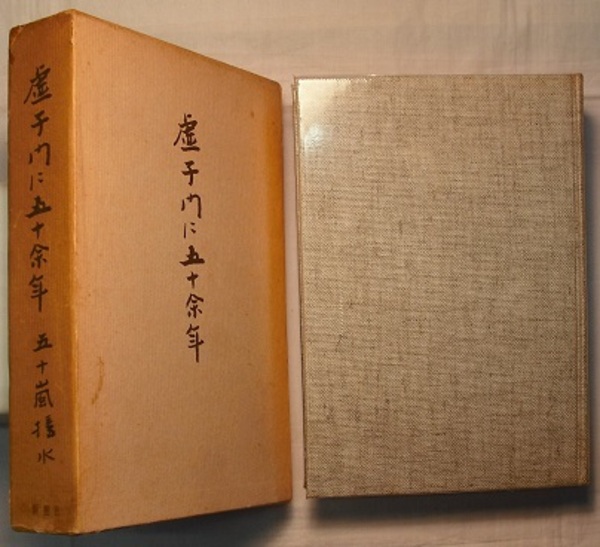 虚子門に五十余年
五十嵐播水
虚子門に五十余年